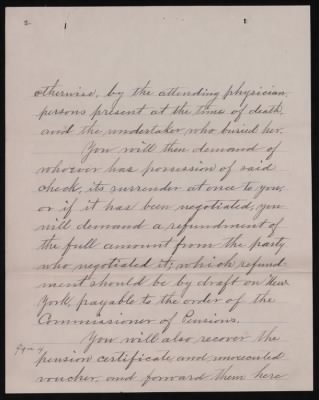 2-
otherwise, by the attending physician,
persons present at the time of death,
and the undertaker who buried her.
You will then demand of
whoever has possession of said
check, its surrender at once to you,
or if it has been negotiated, you
will demand a refundment of
the full amount from the party
who negotiated it; which refund-
ment should be by draft on New
York, payable to the order of the
Commissioner of Pensions.
You will also recover the
pension certificate and unexecuted
voucher, and forward them here